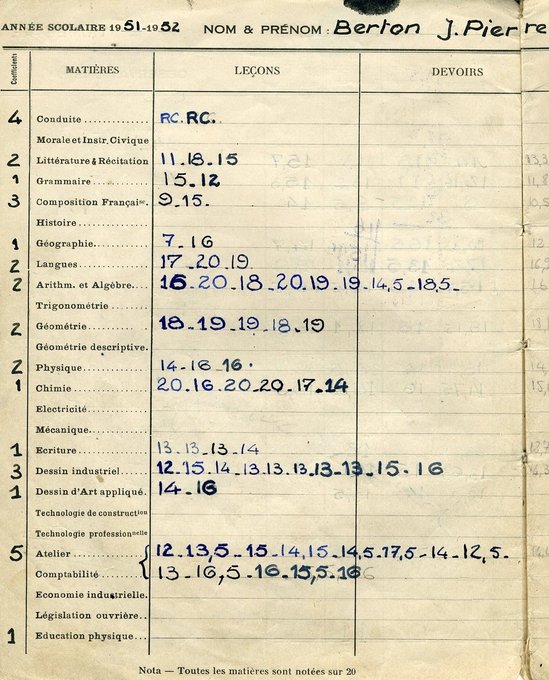 ANNÉE SCOLAIRE 1951-1952 NOM & PRÉNOM : Berton J. Pierre
Coefficients MATIÈRES LEÇONS DEVOIRS
4 Conduite RC. RC.
Morale et Instr. Civique
2 Littérature & Récitation 11.18.15
1 Grammaire 15.12
3 Composition Française. 9.15.
Histoire
1 Géographie 7.16
2 Langues 17.20.19
2 Arithm. et Algèbre 16.20.18.20.19.19.14,5.18,5.
Trigonométrie
2 Géométrie 18.19.19.18.19
Géométrie descriptive.
2 Physique 14.16.16.
1 Chimie 20.16.20.20.17.14
Electricité
Mécanique
1 Ecriture 13.13.13.14
3 Dessin industriel 12.15.14.13.13.13.13.13.15.16
1 Dessin d'Art appliqué. 14.16
Technologie de construction
Technologie professionnelle
5 Atelier 12.13,5.15.14,15.14,5.17,5.14.12,5.
Comptabilité 13.16,5.16.15,5.16
Economie industrielle.
Législation ouvrière
1 Education physique
Nota — Toutes les matières sont notées sur 20